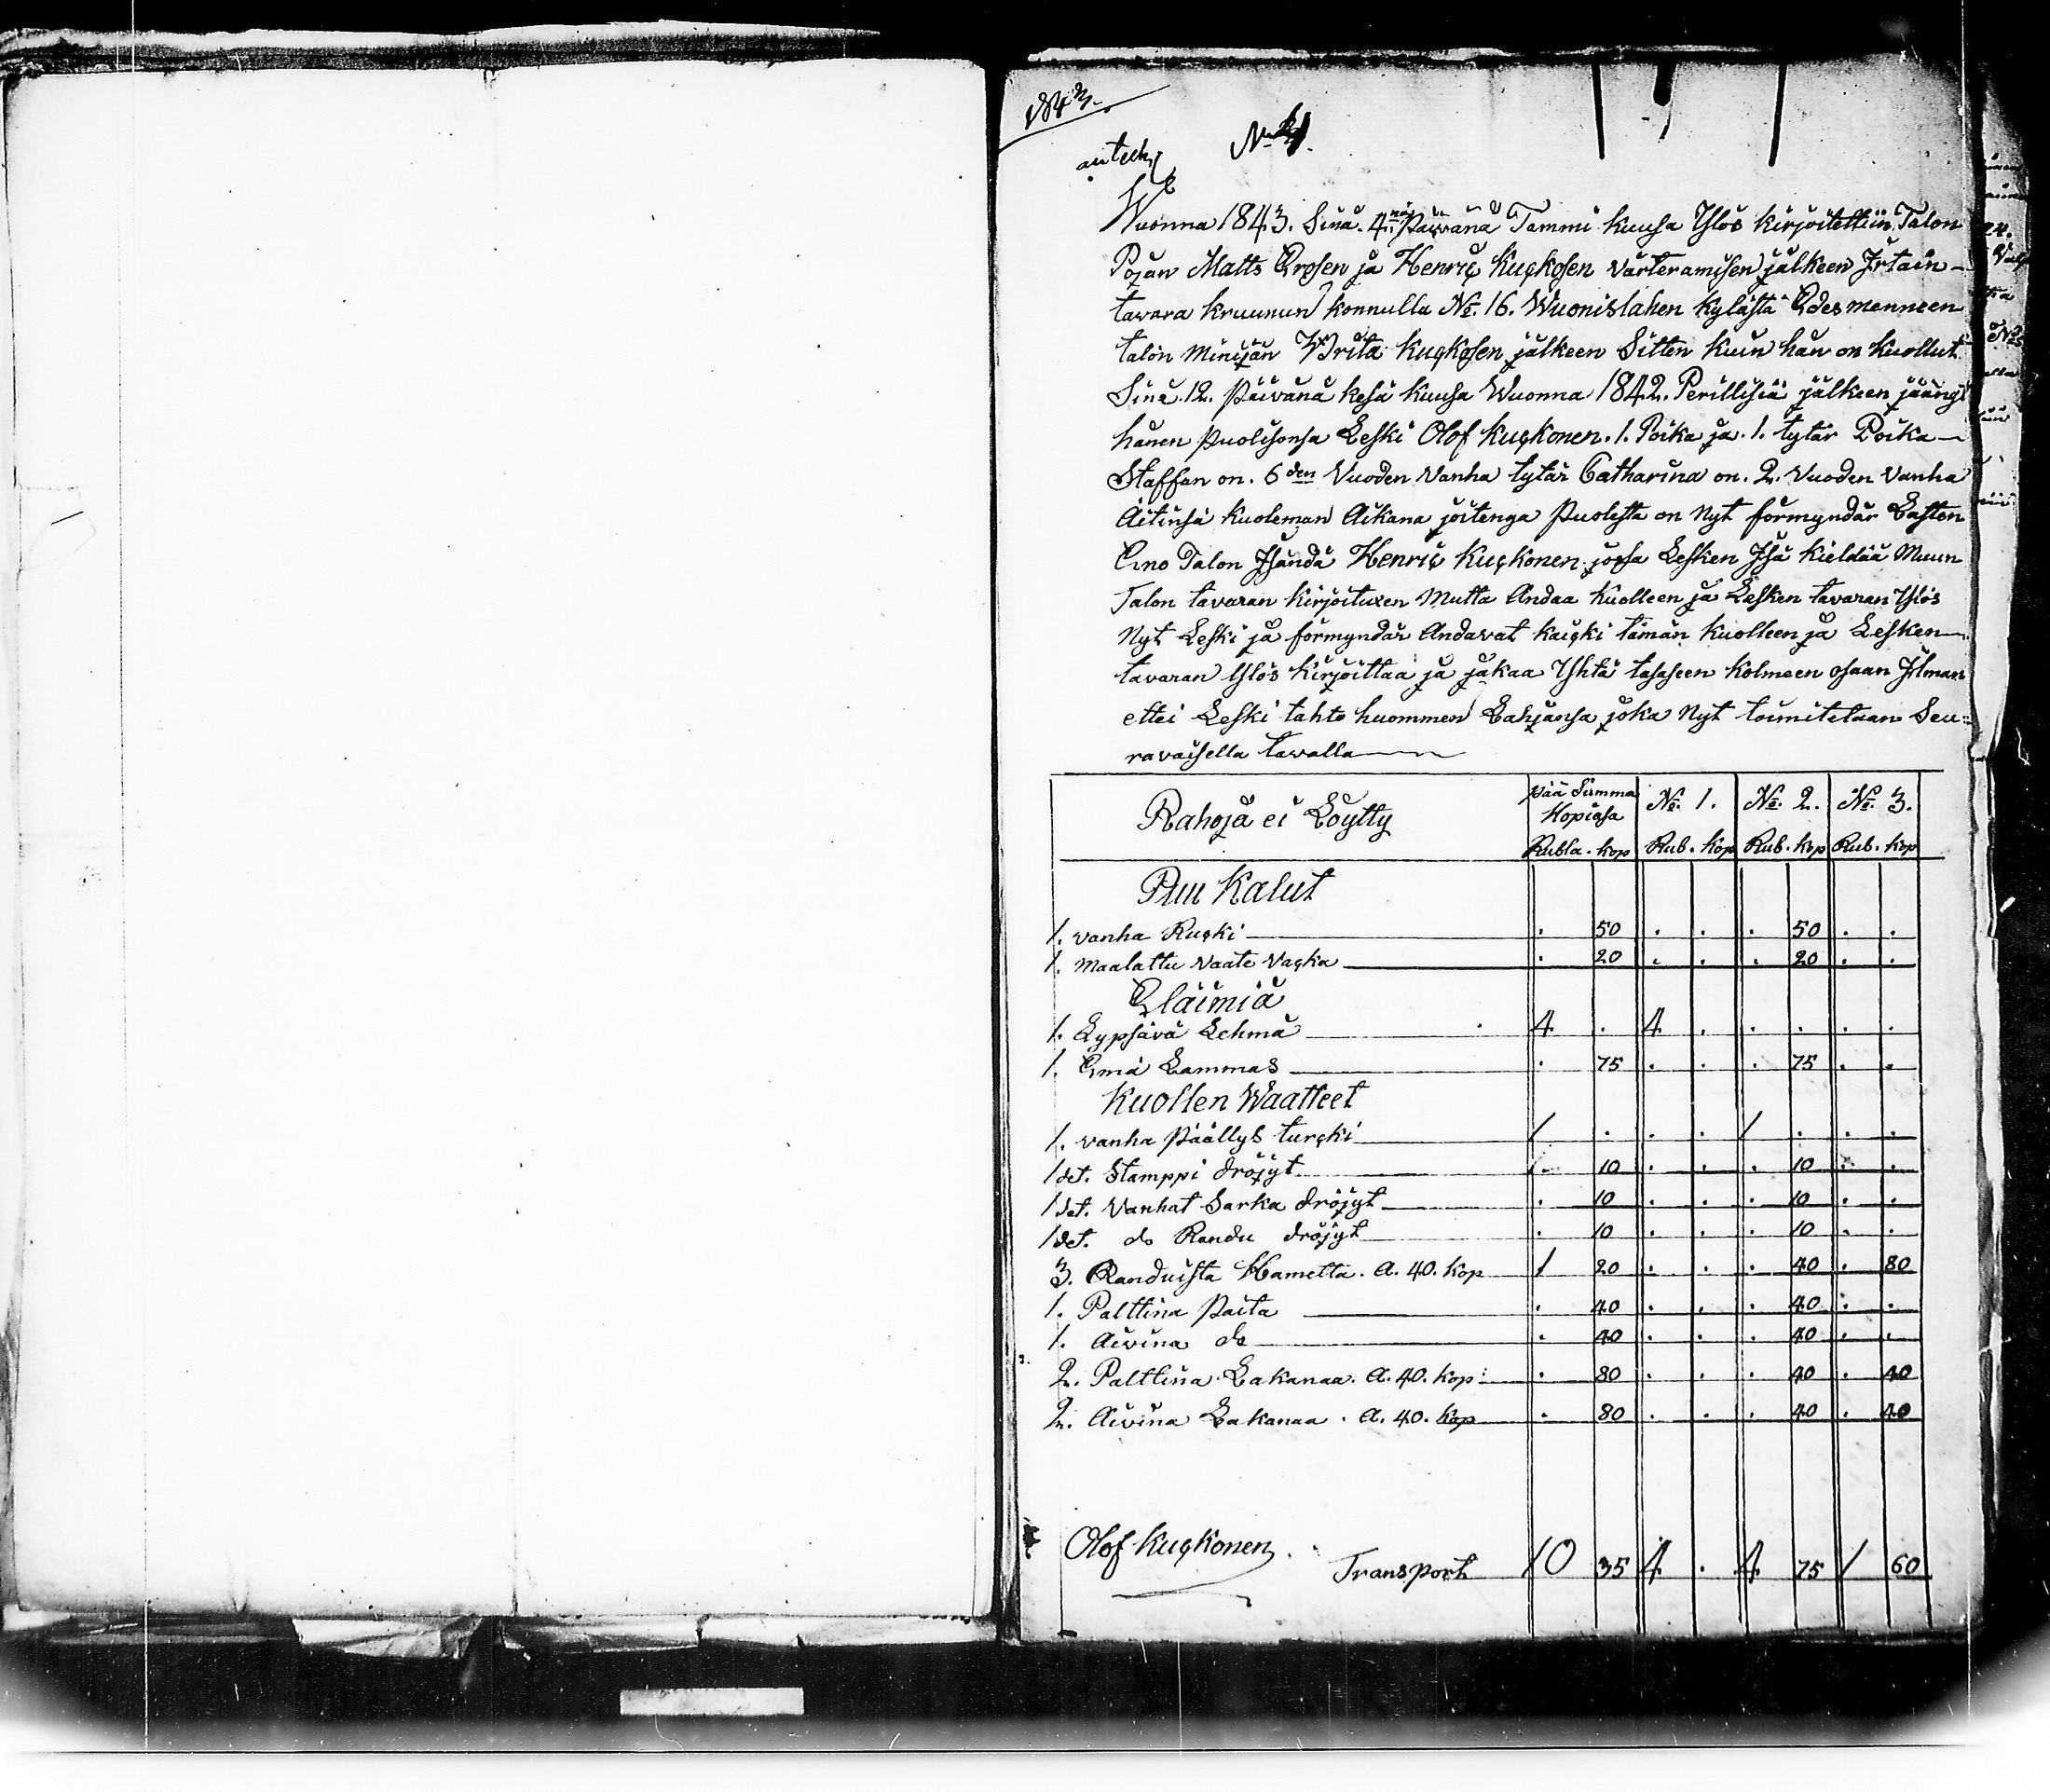 1843.
antech
Wuonna 1843. Sinä. 4nä Päivänä Tammi kuusa Ylös kirjoitettiin Talon
Pojan Matts Erosen ja Henriç Kuçkosen värteramisen jälkeen Jrtain-
tavara kruunun konnulla No. 16. Wuonislahen kylästä Edesmenneen
talon Minijän Brita Kuçkosen jälkeen Sitten kuin hän on kuollut
Sinä. 12. Päivänä kesä kuusa Wuonna 1842. Perillisiä jälkeen jäängi
hänen Puolisonsa Leski Olof Kuçkonen. 1. Poika ja. 1. tytär Poika
Staffan on. 6den Vuoden Vanha tytär Catharina on. 2. Vuoden Vanha
Äitinsä kuoleman Aikana joitenga Puolesta on Nyt förmyndär Lasten
Eno Talon Jsändä Henriç Kuçkonen josa Lesken Jsä kieldää Muun
Talon tavaran kirjoituxen Mutta Andaa kuolleen ja Lesken tavaran Ylös
Nyt Leski ja förmyndär Andavat kaiçki tämän kuolleen ja Lesken
tavaran Ylös kirjoittaa ja jakaa Yhtä tasaseen kolmeen osaan Jlman
ettei Leski tahto huommen Lahjansa joka Nyt toimitetaan Seu=
ravaisella tavalla
Rahoja ei Löytty | Pää Summa Hopiasa | No. 1. | No. 2. | No. 3.
Rubla. kop | Rub. kop | Rub. kop | Rub. kop
Puu Kalut
1. vanha Ruçki . 50 . . . 50 . .
1. Maalattu Vaate Vaçka . 20 . . . 20 . .
Eläimiä
1. Lypsävä Lehmä 4 . 4 . . . . .
1. Emä Lammas . 75 . . . 75 . .
Kuollen Waatteet
1. vanha Päällys turçki 1 . . . 1 . . .
1 det. Stamppi dröjyt . 10 . . . 10 . .
1 det. Vanhat Sarka dröjyt . 10 . . . 10 . .
1 det. do Randu dröjyt . 10 . . . 10 . .
3. Randuista Hametta. A. 40. kop 1 20 . . . 40 . 80
1. Palttina Paita . 40 . . . 40 . .
1. Aivina do . 40 . . . 40 . .
2. Palttina Lakanaa. A. 40. kop: . 80 . . . 40 . 40
2. Aivina Lakanaa. A. 40. kop . 80 . . . 40 . 40
Olof Kuçkonen.
Transport 10 35 4 . 4 75 1 60